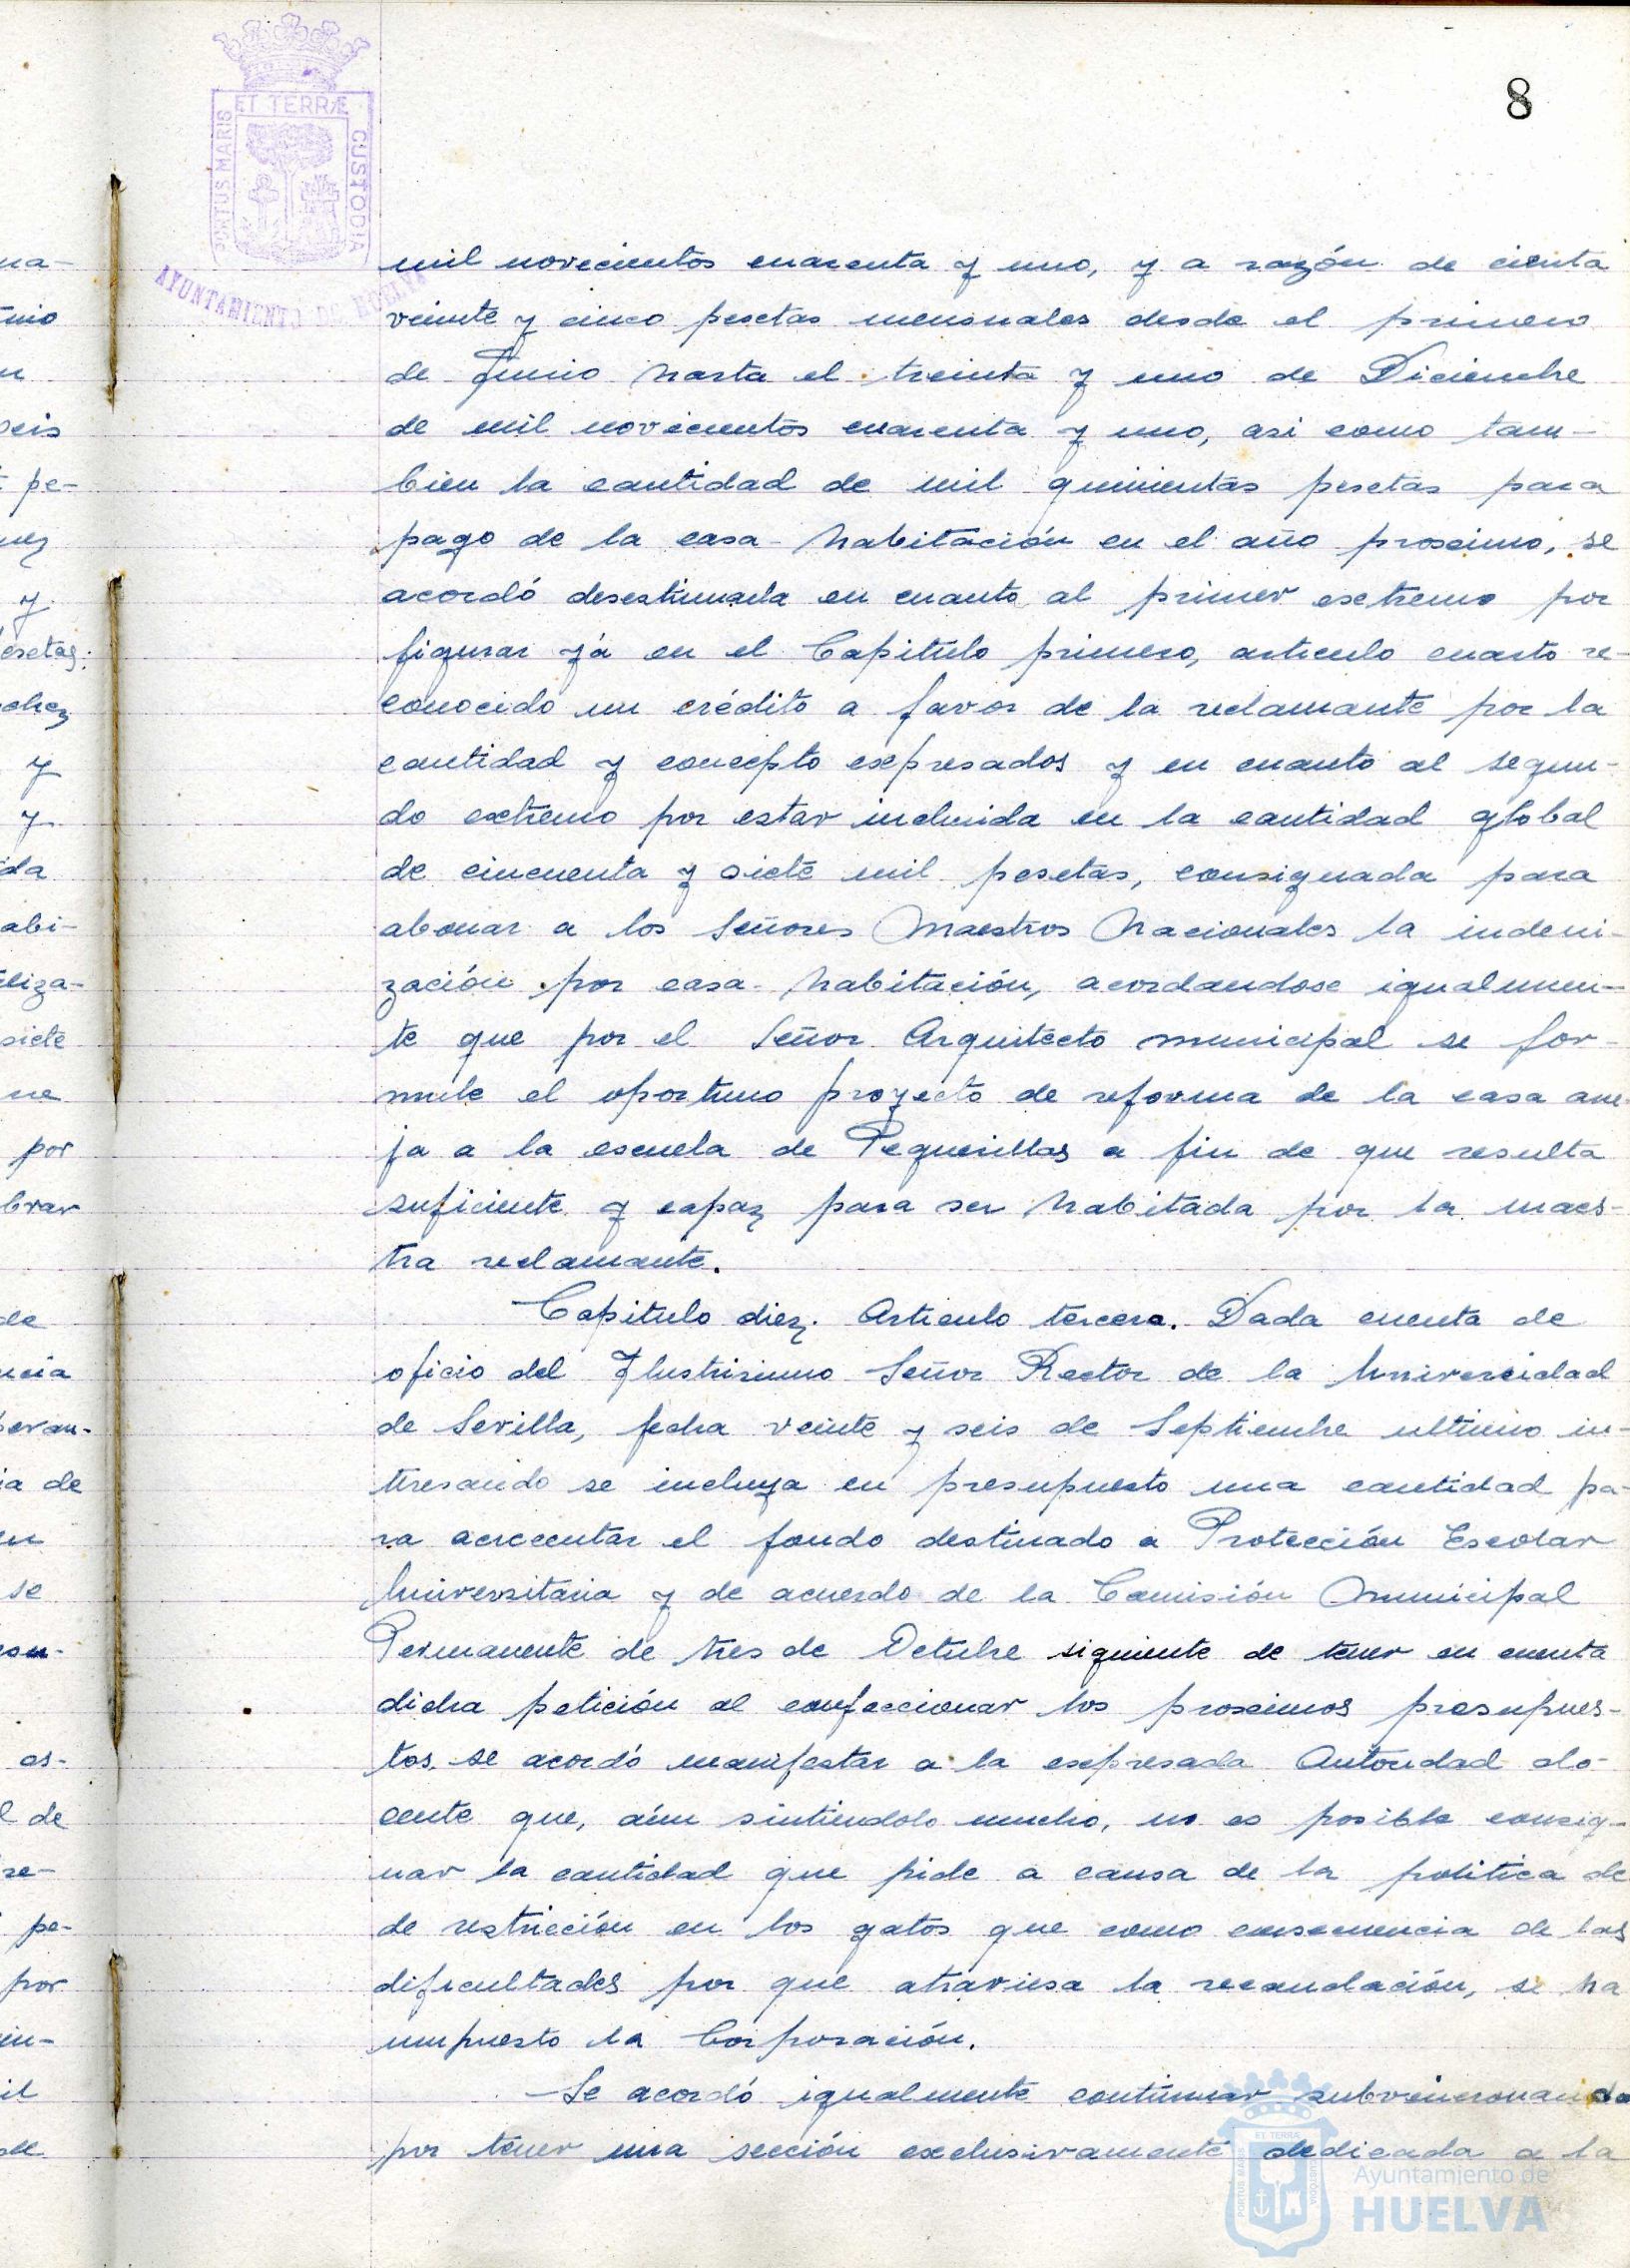 8
ET TERRÆ
PORTUS MARIS
CUSTODIA
AYUNTAMIENTO DE HUELVA
mil novecientos cuarenta y uno, y a razón de cienta
veinte y cinco pesetas mensuales desde el primero
de Junio hasta el treinta y uno de Diciembre
de mil novecientos cuarenta y uno, asi como tam-
bien la cantidad de mil quinientas pesetas para
pago de la casa-habitación en el año proximo, se
acordó desestimarla en cuanto al primer extremo por
figurar yá en el Capítulo primero, articulo cuarto re-
conocido un crédito a favor de la reclamante por la
cantidad y concepto expresados y en cuanto al segun-
do extremo por estar incluida en la cantidad global
de cincuenta y siete mil pesetas, consignada para
abonar a los Señores Maestros Nacionales la indeni-
zación por casa-habitación, acordandose igualmen-
te que por el Señor Arquitecto municipal se for-
mule el oportuno proyecto de reforma de la casa ane-
ja a la escuela de Pequerillas a fin de que resulta
suficiente y capaz para ser habitada por la maes-
tra reclamante.
Capitulo diez. Articulo tercero. Dada cuenta de
oficio del Ilustrisimo Señor Rector de la Universidad
de Sevilla, fecha veinte y seis de Septiembre ultimo in-
teresando se incluya en presupuesto una cantidad pa-
ra acrecentar el fondo destinado a Protección Escolar
Universitaria y de acuerdo de la Comisión Municipal
Permanente de tres de Octubre siguiente de tener en cuenta
dicha petición al confeccionar los proximos presupues-
tos, se acordó manifestar a la expresada Autoridad do-
cente que, aún sintiendolo mucho, no es posible consig-
nar la cantidad que pide a causa de la politica de
de restricción en los gatos que como consecuencia de las
dificultades por que atraviesa la recaudación, se ha
impuesto la Corporación.
Se acordó igualmente continuar subvencionando
por tener una sección exclusivamente dedicada a la
Ayuntamiento de
HUELVA